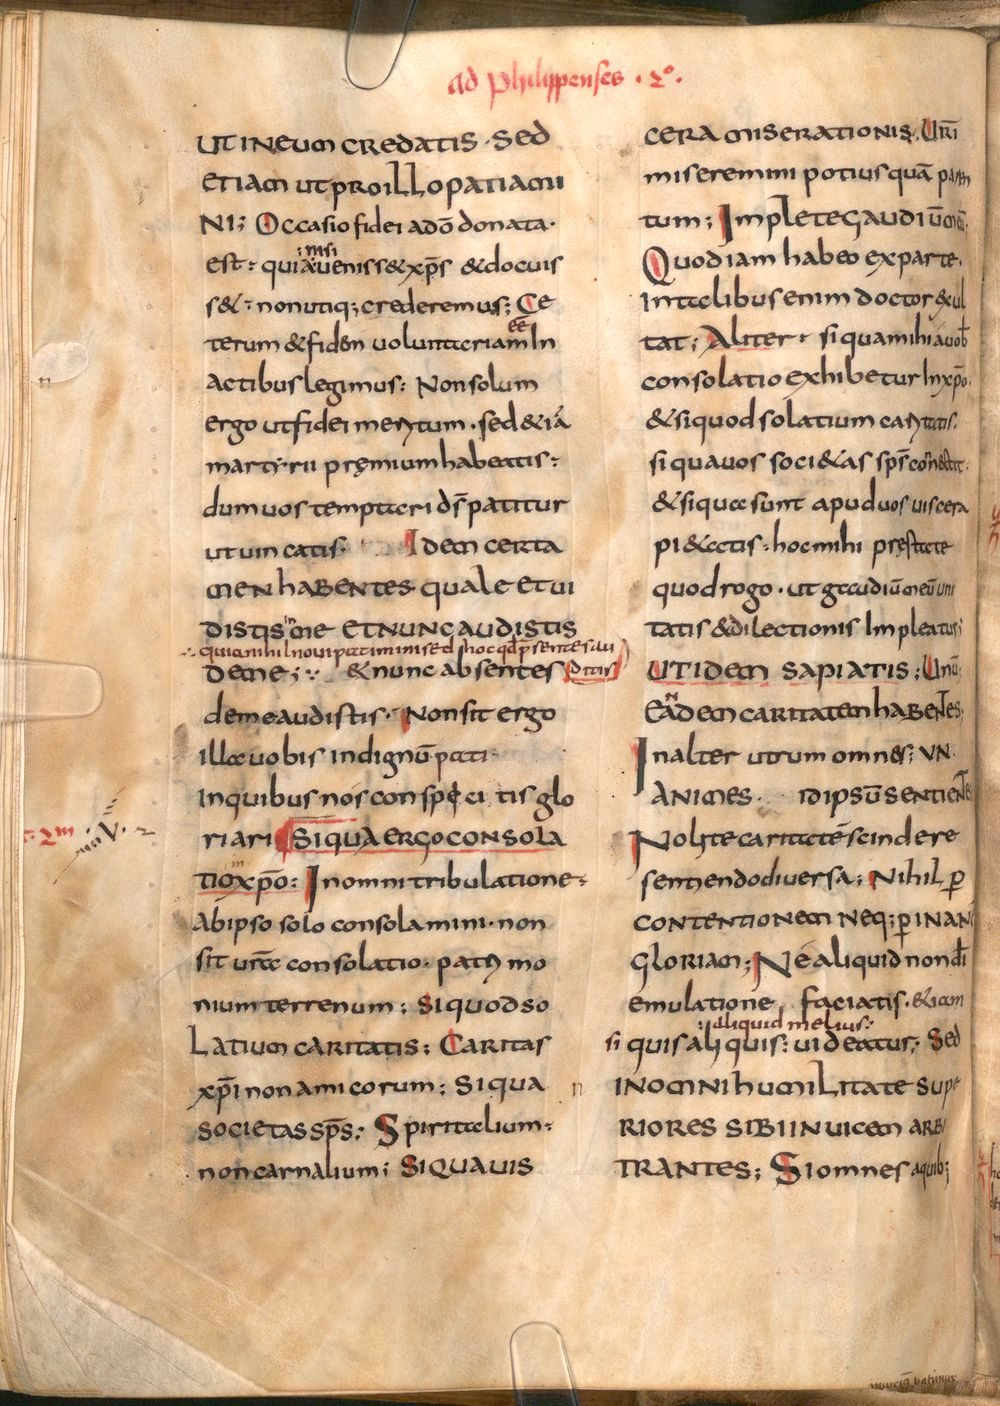 ad philippenses · 2º ·
UT IN EUM CREDATIS · Sed
ETIAM UT PRO ILLO PATIAMI
NI; Occasio fidei a dō donata ·
: nisi
est: quia uenisset xp̄s & docuis
s&: non utiq; crederemus; Ce
eē
terum & fidem uoluntariam In
actibus legimus: Non solum
ergo ut fidei meritum · sed & iā
martyrii premium habeatis:
dum uos temptari ds̄ patitur
ut uincatis · Idem certa
MEN HABENTES · QUALE ET UI
DISTIS IN ME ET NUNC AUDISTIS
quia nihil noui patimini sed hoc qd p̄sentes ui
DE ME; & nunc absentes distis
de me audistis · Non sit ergo
illa uobis indignū pati ·
In quibus nos conspicitis glo
riari Si QUA ERGO CONSOLA
TIO IN XP̄O: In omni tribulatione:
Ab ipso solo consolamini · non
sit urā consolatio · patrimo
nium terrenum: Si quod so
LATIUM CARITATIS; Caritas
xp̄i non amicorum; Si qua
societas sps̄: Spiritalium:
non carnalium; Si QUA UIS
CERA MISERATIONIS · Urī
miseremini potius quā par&n
tum; Implete gaudiū meū;
Quod iam habeo ex parte ·
In talibus enim doctor exul
tat; Aliter · si qua mihi a uob
consolatio exhibetur In xp̄o ·
& si quod solatium caritatis ·
si qua uos soci&as sps̄ conectit ·
& si qua sunt apud uos uiscera
pi&atis: hoc mihi prestate
quod rogo · ut gaudiū meū uni
tatis & dilectionis Impleatur;
UT IDEM SAPIATIS; Unū;
EANDEM CARITATEM HABENTES;
In alterutrum omnes; UN
ANIMES · IDIPSŪ SENTIENTES
Nolite caritatē scindere
sentiendo diversa; Nihil p
CONTENTIONEM Neq; p INANĒ
GLORIAM; Ne aliquid non di
emulatione faciatis · &iam
: aliquid melius:
si quis alii quis: uideatur; Sed
IN OMNI HUMILITATE SUPE
RIORES SIBI INUICEM ARBI
TRANTES; Si omnes a quib;
: 2m
iiii · V · 2